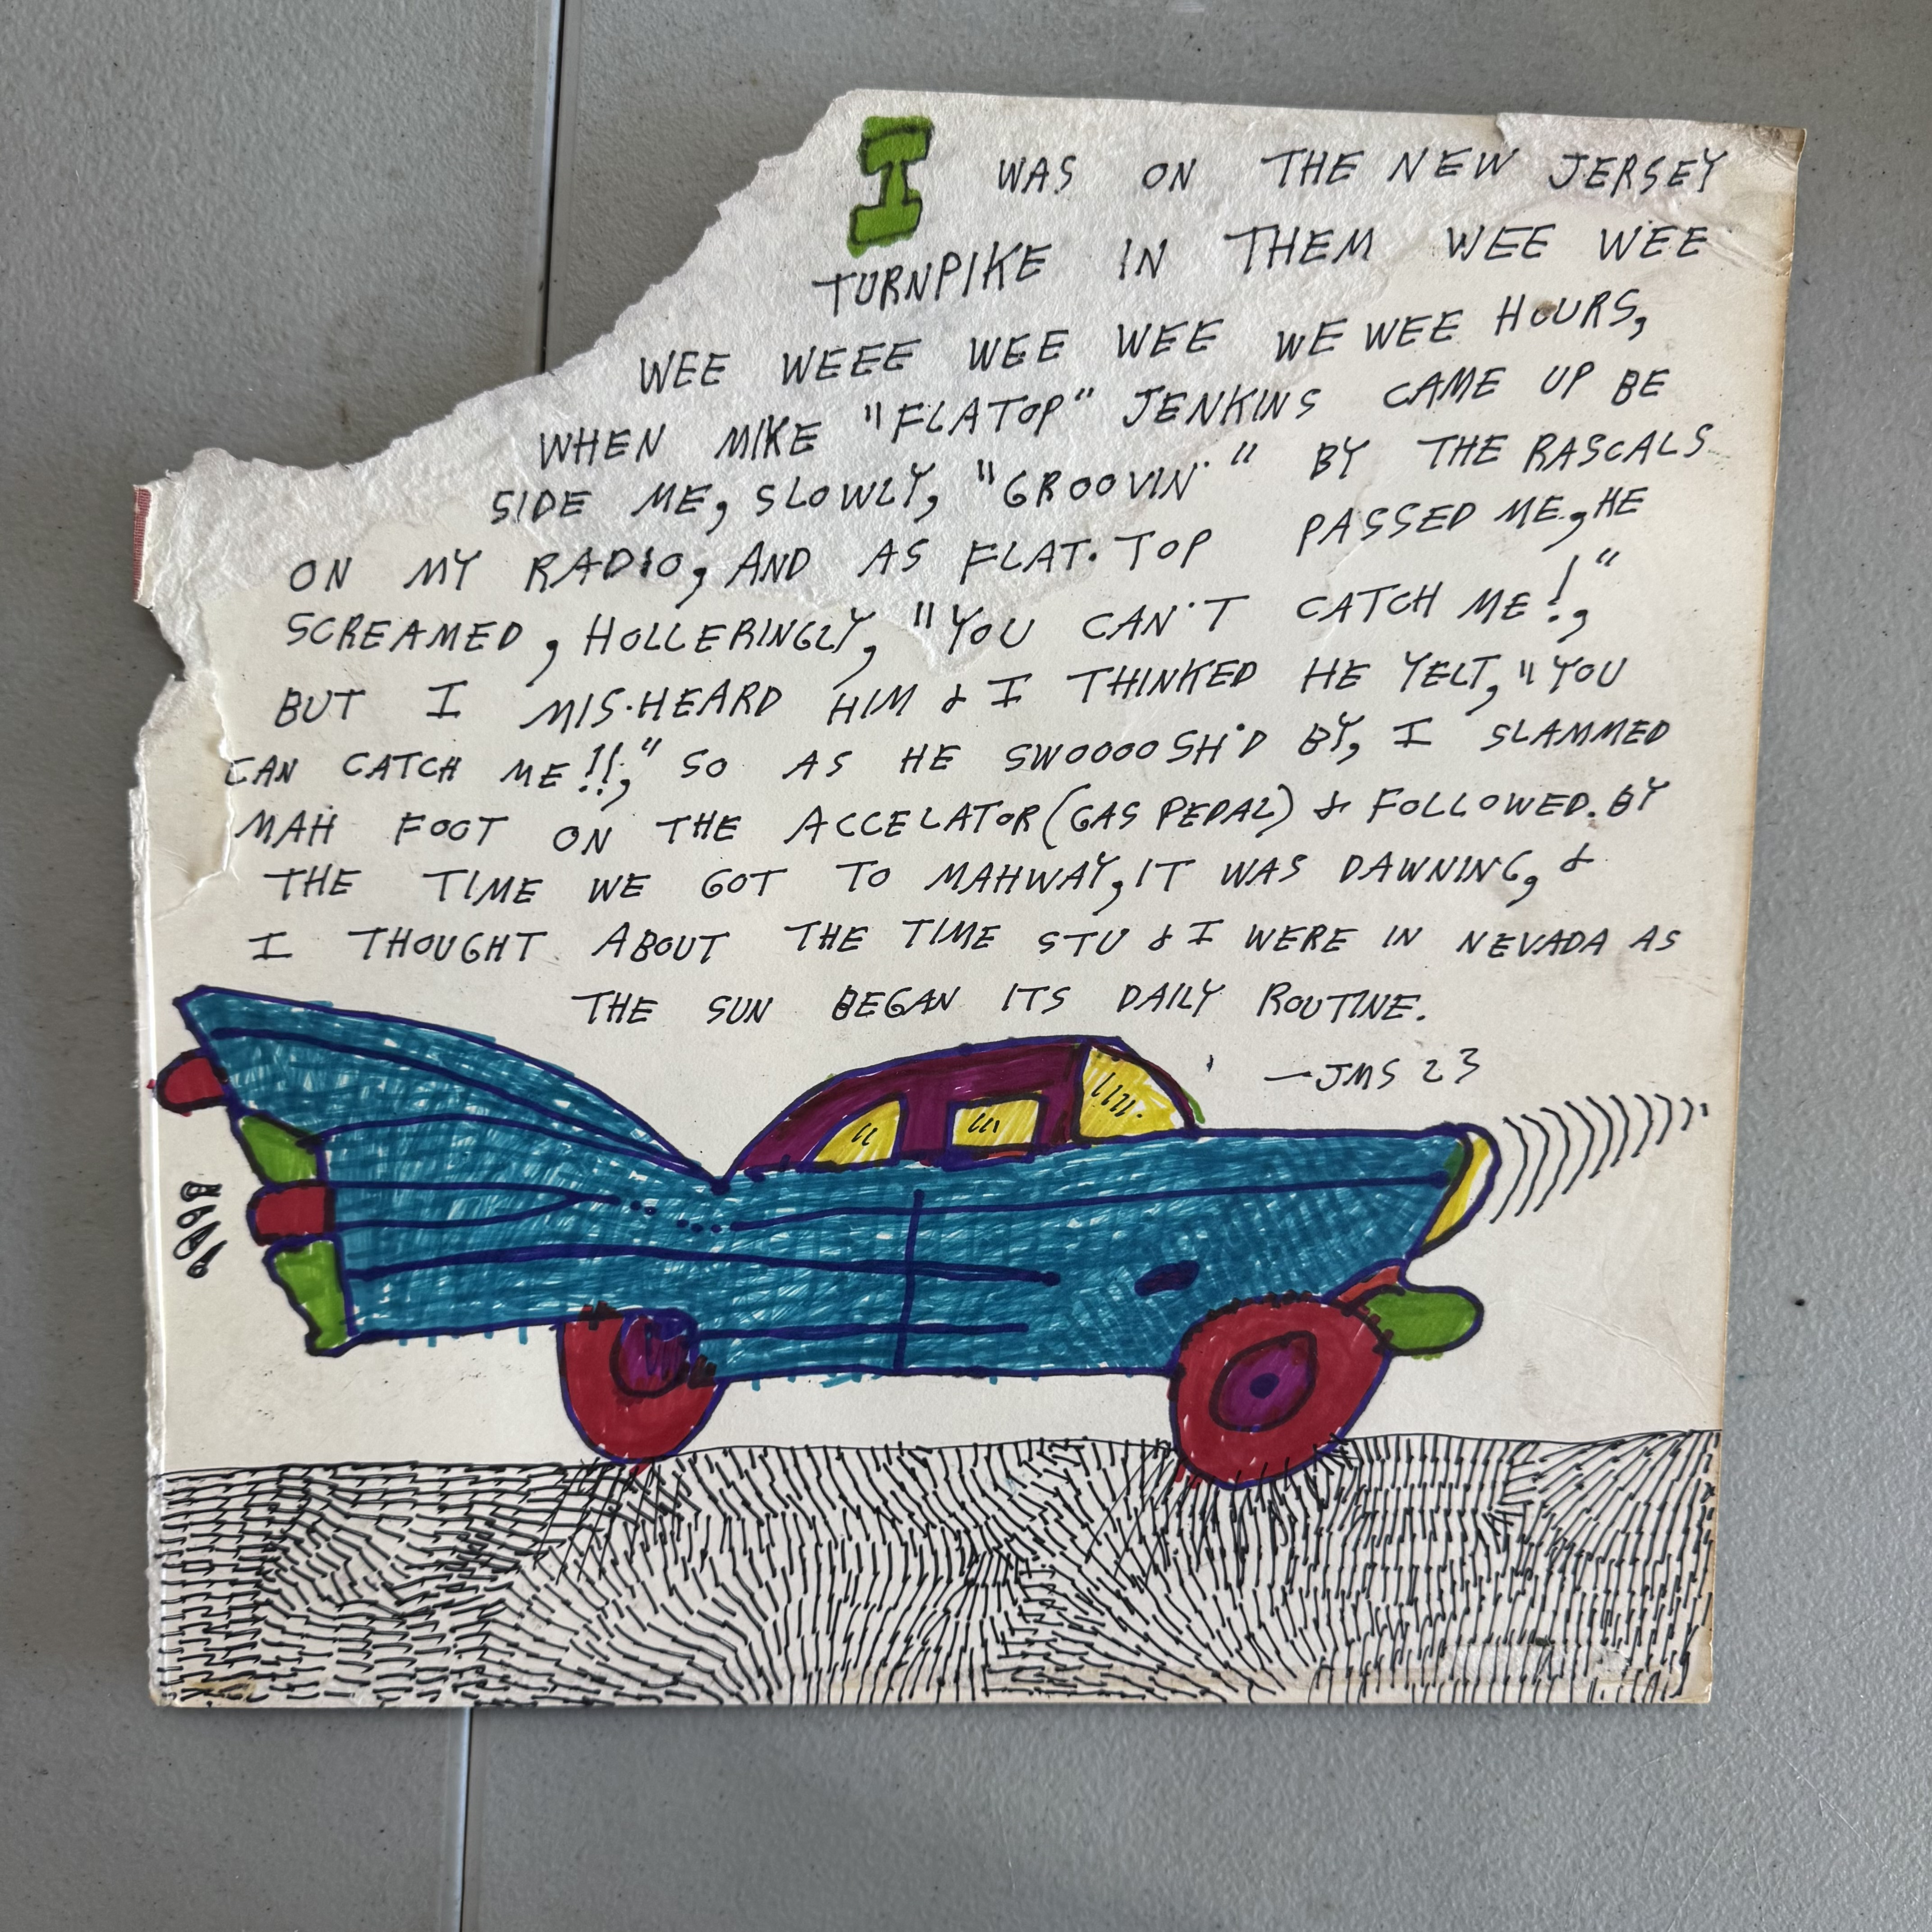 I WAS ON THE NEW JERSEY
TURNPIKE IN THEM WEE WEE
WEE WEEE WEE WEE WE WEE HOURS,
WHEN MIKE "FLATOP" JENKINS CAME UP BE
SIDE ME, SLOWLY, "GROOVIN'" BY THE RASCALS
ON MY RADIO, AND AS FLAT·TOP PASSED ME, HE
SCREAMED, HOLLERINGLY, "YOU CAN'T CATCH ME!,"
BUT I MIS·HEARD HIM & I THINKED HE YELT, "YOU
CAN CATCH ME!!," SO AS HE SWOOOOSH'D BY, I SLAMMED
MAH FOOT ON THE ACCELATOR (GAS PEDAL) & FOLLOWED. BY
THE TIME WE GOT TO MAHWAY, IT WAS DAWNING, &
I THOUGHT ABOUT THE TIME STU & I WERE IN NEVADA AS
THE SUN BEGAN ITS DAILY ROUTINE.
—JMS 23